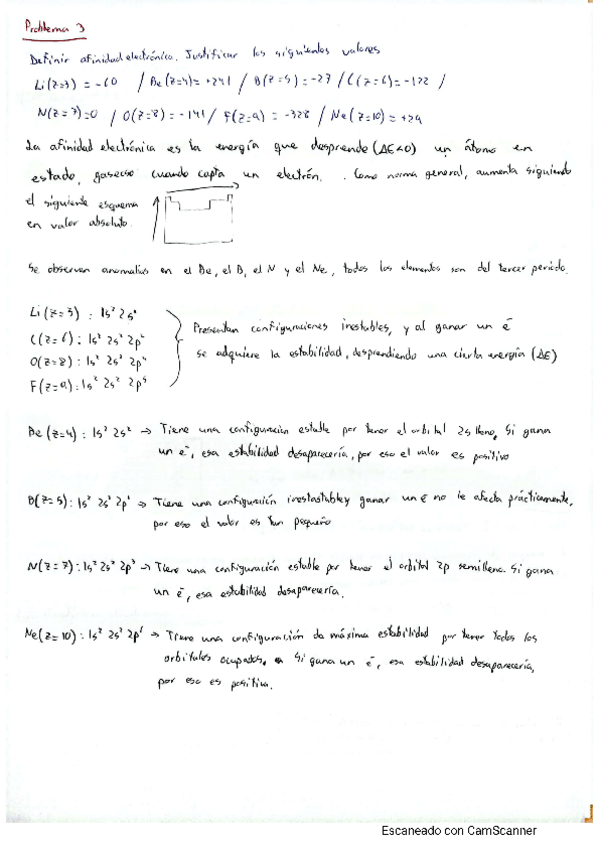 Problema 3
Definir afinidad electrónica. Justificar los siguientes valores
Li(z=3) = -60 / Be(z=4)= +241 / B(z=5) = -27 / C(z=6)= -122 /
N(z=7)=0 / O(z=8) = -141 / F(z=9) = -328 / Ne(z=10) = +29
La afinidad electrónica es la energía que desprende (ΔE<0) un átomo en
estado gaseoso cuando capta un electrón. Como norma general, aumenta siguiendo
el siguiente esquema
en valor absoluto.
Se observan anomalias en el Be, el B, el N y el Ne, todos los elementos son del tercer periodo.
Li(z=3) : 1s² 2s¹
C(z=6) : 1s² 2s² 2p²
O(z=8) : 1s² 2s² 2p⁴
F(z=9) : 1s² 2s² 2p⁵
Presentan configuraciones inestables, y al ganar un e⁻
se adquiere la estabilidad, desprendiendo una cierta energía (ΔE)
Be(z=4) : 1s² 2s² → Tiene una configuración estable por tener el orbital 2s lleno. Si gana
un e⁻, esa estabilidad desaparecería, por eso el valor es positivo
B(z=5) : 1s² 2s² 2p¹ → Tiene una configuración y ganar un e⁻ no le afecta prácticamente,
por eso el valor es tan pequeño
N(z=7) : 1s² 2s² 2p³ → Tiene una configuración estable por tener el orbital 2p semilleno. Si gana
un e⁻, esa estabilidad desaparecería.
Ne(z=10) : 1s² 2s² 2p⁶ → Tiene una configuración de máxima estabilidad por tener todos los
orbitales ocupados, si gana un e⁻, esa estabilidad desaparecería,
por eso es positiva.
Escaneado con CamScanner